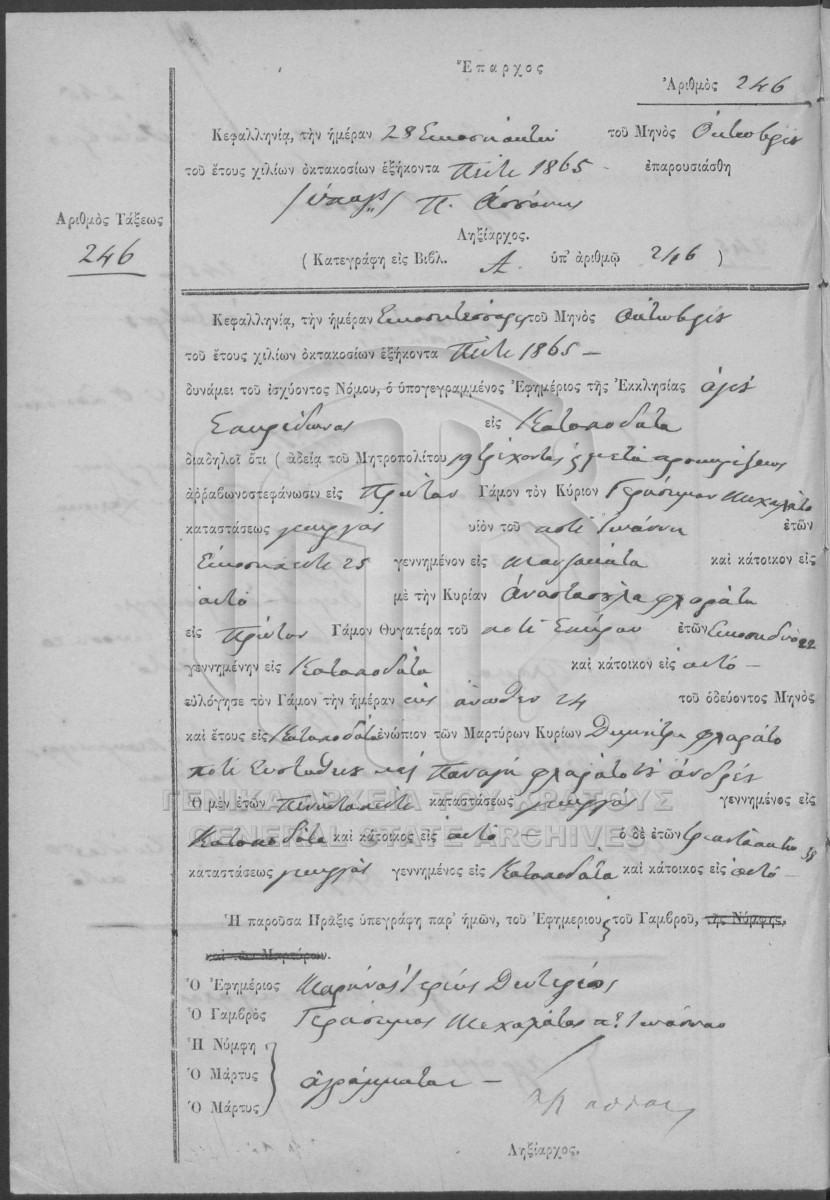 Ἔπαρχος
Ἀριθμὸς 246
Κεφαλληνίᾳ, τὴν ἡμέραν 28 Εικοσιοκτώ τοῦ Μηνὸς Οκτωβρίου
τοῦ ἔτους χιλίων ὀκτακοσίων ἑξήκοντα Πέντε 1865 — ἐπαρουσιάσθη
Ἀριθμὸς Τάξεως
246
Ληξίαρχος.
( Κατεγράφη εἰς Βιβλ. Α. ὑπ' ἀριθμῷ 246 )
Κεφαλληνίᾳ, τὴν ἡμέραν Εικοσιτέσσαρες τοῦ Μηνὸς Οκτωβρίου
τοῦ ἔτους χιλίων ὀκτακοσίων ἑξήκοντα Πέντε 1865 —
δυνάμει τοῦ ἰσχύοντος Νόμου, ὁ ὑπογεγραμμένος Ἐφημέριος τῆς Ἐκκλησίας ἁγίου
Σπυρίδωνος εἰς Καταποδάτα
διαδηλοῖ ὅτι ( ἀδείᾳ τοῦ Μητροπολίτου 19 τρέχοντος ᾗ μετὰ προκηρύξεως
ἀῤῥαβωνοστεφάνωσιν εἰς Πρῶτον Γάμον τὸν Κύριον Γεράσιμον Μιχαλάτο
καταστάσεως γεωργός υἱὸν τοῦ ποτέ Ιωάννη ἐτῶν
Εικοσιπέντε 25 γεννημένον εἰς Μαυρικάτα καὶ κάτοικον εἰς
αυτό μὲ τὴν Κυρίαν Αναστασούλα Φλαράτη
εἰς Πρῶτον Γάμον Θυγατέρα τοῦ ποτέ Σπύρου ἐτῶν Εικοσιδύο 22
γεννημένην εἰς Καταποδάτα καὶ κάτοικον εἰς αυτό —
εὐλόγησε τὸν Γάμον τὴν ἡμέραν εις άνωθεν 24 τοῦ ὁδεύοντος Μηνὸς
καὶ ἔτους εἰς Καταποδάτα ἐνώπιον τῶν Μαρτύρων Κυρίων Δημήτρη Φλαράτο
ποτέ Ευσταθίου και Παναγή Φλαράτο τοῦ Ανδρέα
Ὁ μὲν ἐτῶν Πενήντα πέντε καταστάσεως γεωργός γεννημένος εἰς
Καταποδάτα καὶ κάτοικος εἰς αυτό — ὁ δὲ ἐτῶν τριανταοκτώ 38
καταστάσεως γεωργός γεννημένος εἰς Καταποδάτα καὶ κάτοικος εἰς αυτό —
Ἡ παροῦσα Πρᾶξις ὑπεγράφη παρ' ἡμῶν, τοῦ Ἐφημερίου τοῦ Γαμβροῦ, τῆς Νύμφης,
καὶ τῶν Μαρτύρων.
Ὁ Ἐφημέριος Μαρίνος Ιερεύς
Ὁ Γαμβρὸς Γεράσιμος Μιχαλάτος π: Ιωάννου
Ἡ Νύμφη
Ὁ Μάρτυς αγράμματοι —
Ὁ Μάρτυς
Ληξίαρχος.
ΓΕΝΙΚΑ ΑΡΧΕΙΑ ΤΟΥ ΚΡΑΤΟΥΣ
GENERAL STATE ARCHIVES